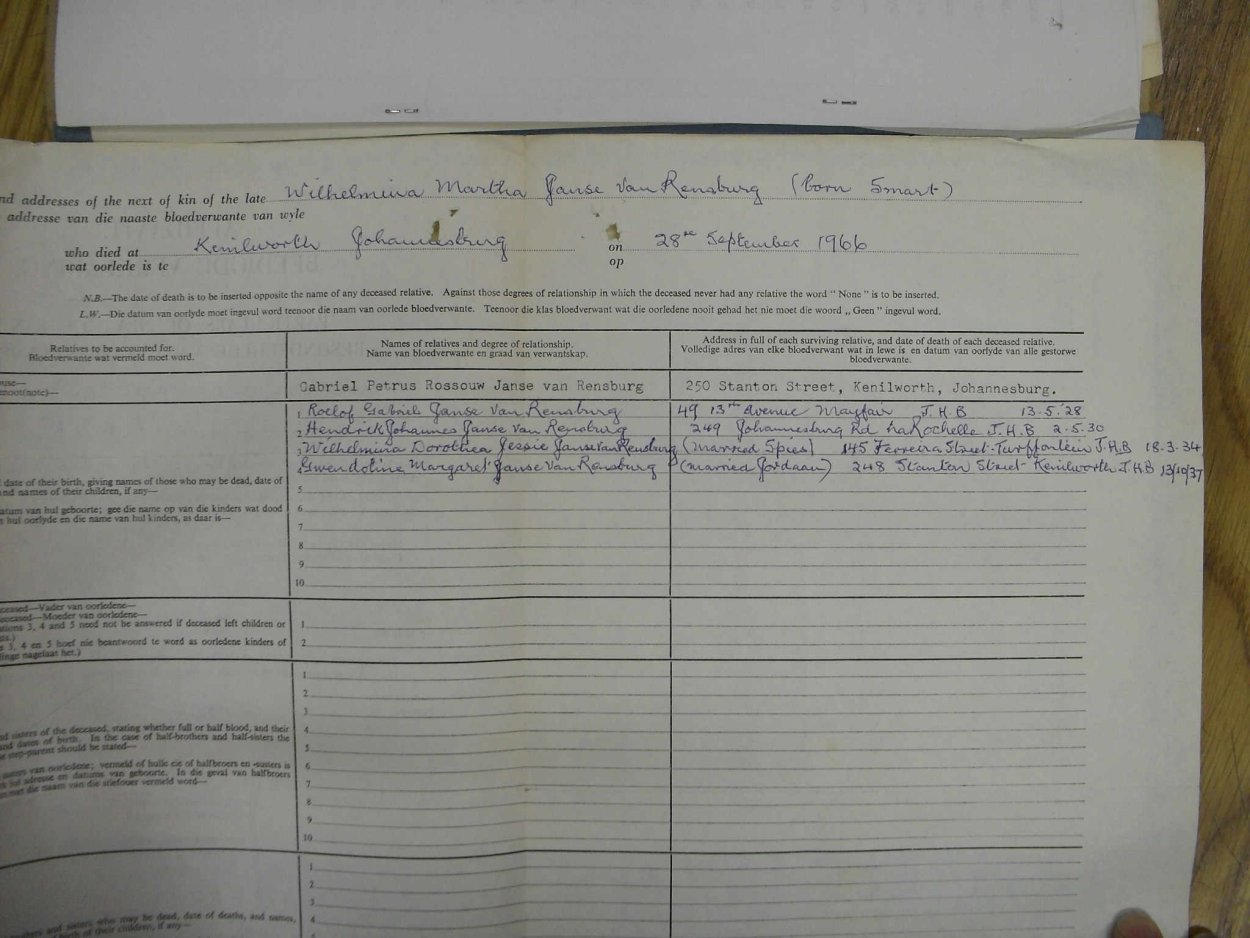 nd addresses of the next of kin of the late Wilhelmina Martha Janse Van Rensburg (born Smart)
addresse van die naaste bloedverwante van wyle
who died at Kenilworth Johannesburg on 28th September 1966
wat oorlede is te op
N.B.—The date of death is to be inserted opposite the name of any deceased relative. Against those degrees of relationship in which the deceased never had any relative the word "None" is to be inserted.
L.W.—Die datum van oorlyde moet ingevul word teenoor die naam van oorlede bloedverwante. Teenoor die klas bloedverwant wat die oorledene nooit gehad het nie moet die woord „Geen" ingevul word.
Relatives to be accounted for. Names of relatives and degree of relationship. Address in full of each surviving relative, and date of death of each deceased relative.
Bloedverwante wat vermeld moet word. Name van bloedverwante en graad van verwantskap. Volledige adres van elke bloedverwant wat in lewe is en datum van oorlyde van alle gestorwe
bloedverwante.
use—
noot(note)— Gabriel Petrus Rossouw Janse van Rensburg 250 Stanton Street, Kenilworth, Johannesburg.
1 Roelof Gabriel Janse Van Rensburg 49 13th Avenue Mayfair J.H.B 13.5.'28
2 Hendrick Johannes Janse Van Rensburg 249 Johannesburg Rd La Rochelle J.H.B 2.5.30
3 Wilhelmina Dorothea Jessie Janse Van Rensburg (married Spies) 145 Ferreira Street. Turffontein J.H.B 18.3.34
Gwendoline Margaret Janse Van Rensburg (married Jordaan) 248 Stanton Street Kenilworth J.H.B 13/10/37
date of their birth, giving names of those who may be dead, date of
and names of their children, if any—
5
atum van hul geboorte; gee die name op van die kinders wat dood
hul oorlyde en die name van hul kinders, as daar is—
6
7
8
9
10
ceased—Vader van oorledene—
eceased—Moeder van oorledene—
tions 3, 4 and 5 need not be answered if deceased left children or
1
s 3, 4 en 5 hoef nie beantwoord te word as oorledene kinders of
linge nagelaat het.)
2
1
2
3
nd sisters of the deceased, stating whether full or half blood, and their
and dates of birth. In the case of half-brothers and half-sisters the
step-parent should be stated—
4
5
susters van oorledene; vermeld of hulle eie of halfbroers en -susters is
hul adresse en datums van geboorte. In die geval van halfbroers
moet die naam van die stiefouer vermeld word—
6
7
8
9
10
1
2
3
others and sisters who may be dead, date of deaths, and names,
of birth of their children, if any—
4